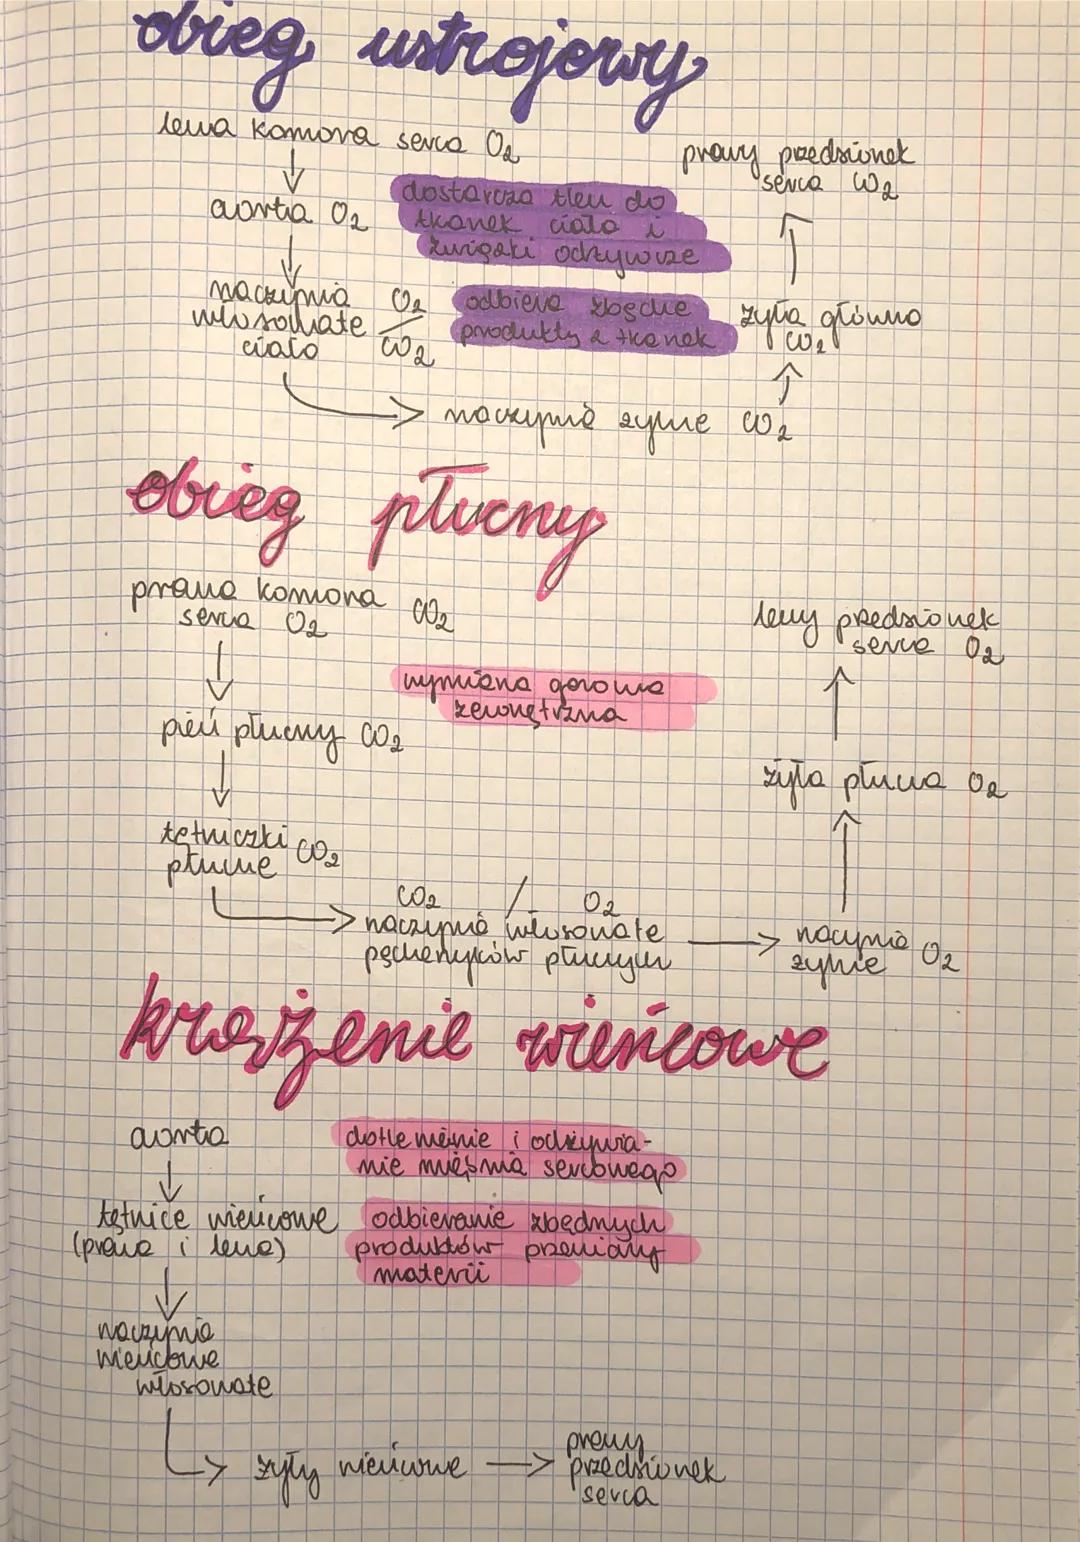 obieg ustrojowy
lewa komora serca O2
prawy przedsionek
serca CO2
aorta O2
dostarcza tlen do
tkanek ciała i
związki odżywcze
naczynia O2
włosowate /
ciała CO2
odbiera zbędne
produkty z tkanek
żyła główna
CO2
naczynia żylne CO2
obieg płucny
prawa komora CO2
serca O2
lewy przedsionek
serca O2
wymiana gazowa
zewnętrzna
pień płucny CO2
żyła płucna O2
tętniczki CO2
płucne
CO2 / O2
naczynia włosowate
pęcherzyków płucnych
naczynia O2
żylne
krążenie wieńcowe
aorta
dotlenienie i odżywia-
nie mięśnia sercowego
tętnice wieńcowe
(prawa i lewa)
odbieranie zbędnych
produktów przemiany
materii
naczynia
wieńcowe
włosowate
żyły wieńcowe
prawy
przedsionek
serca